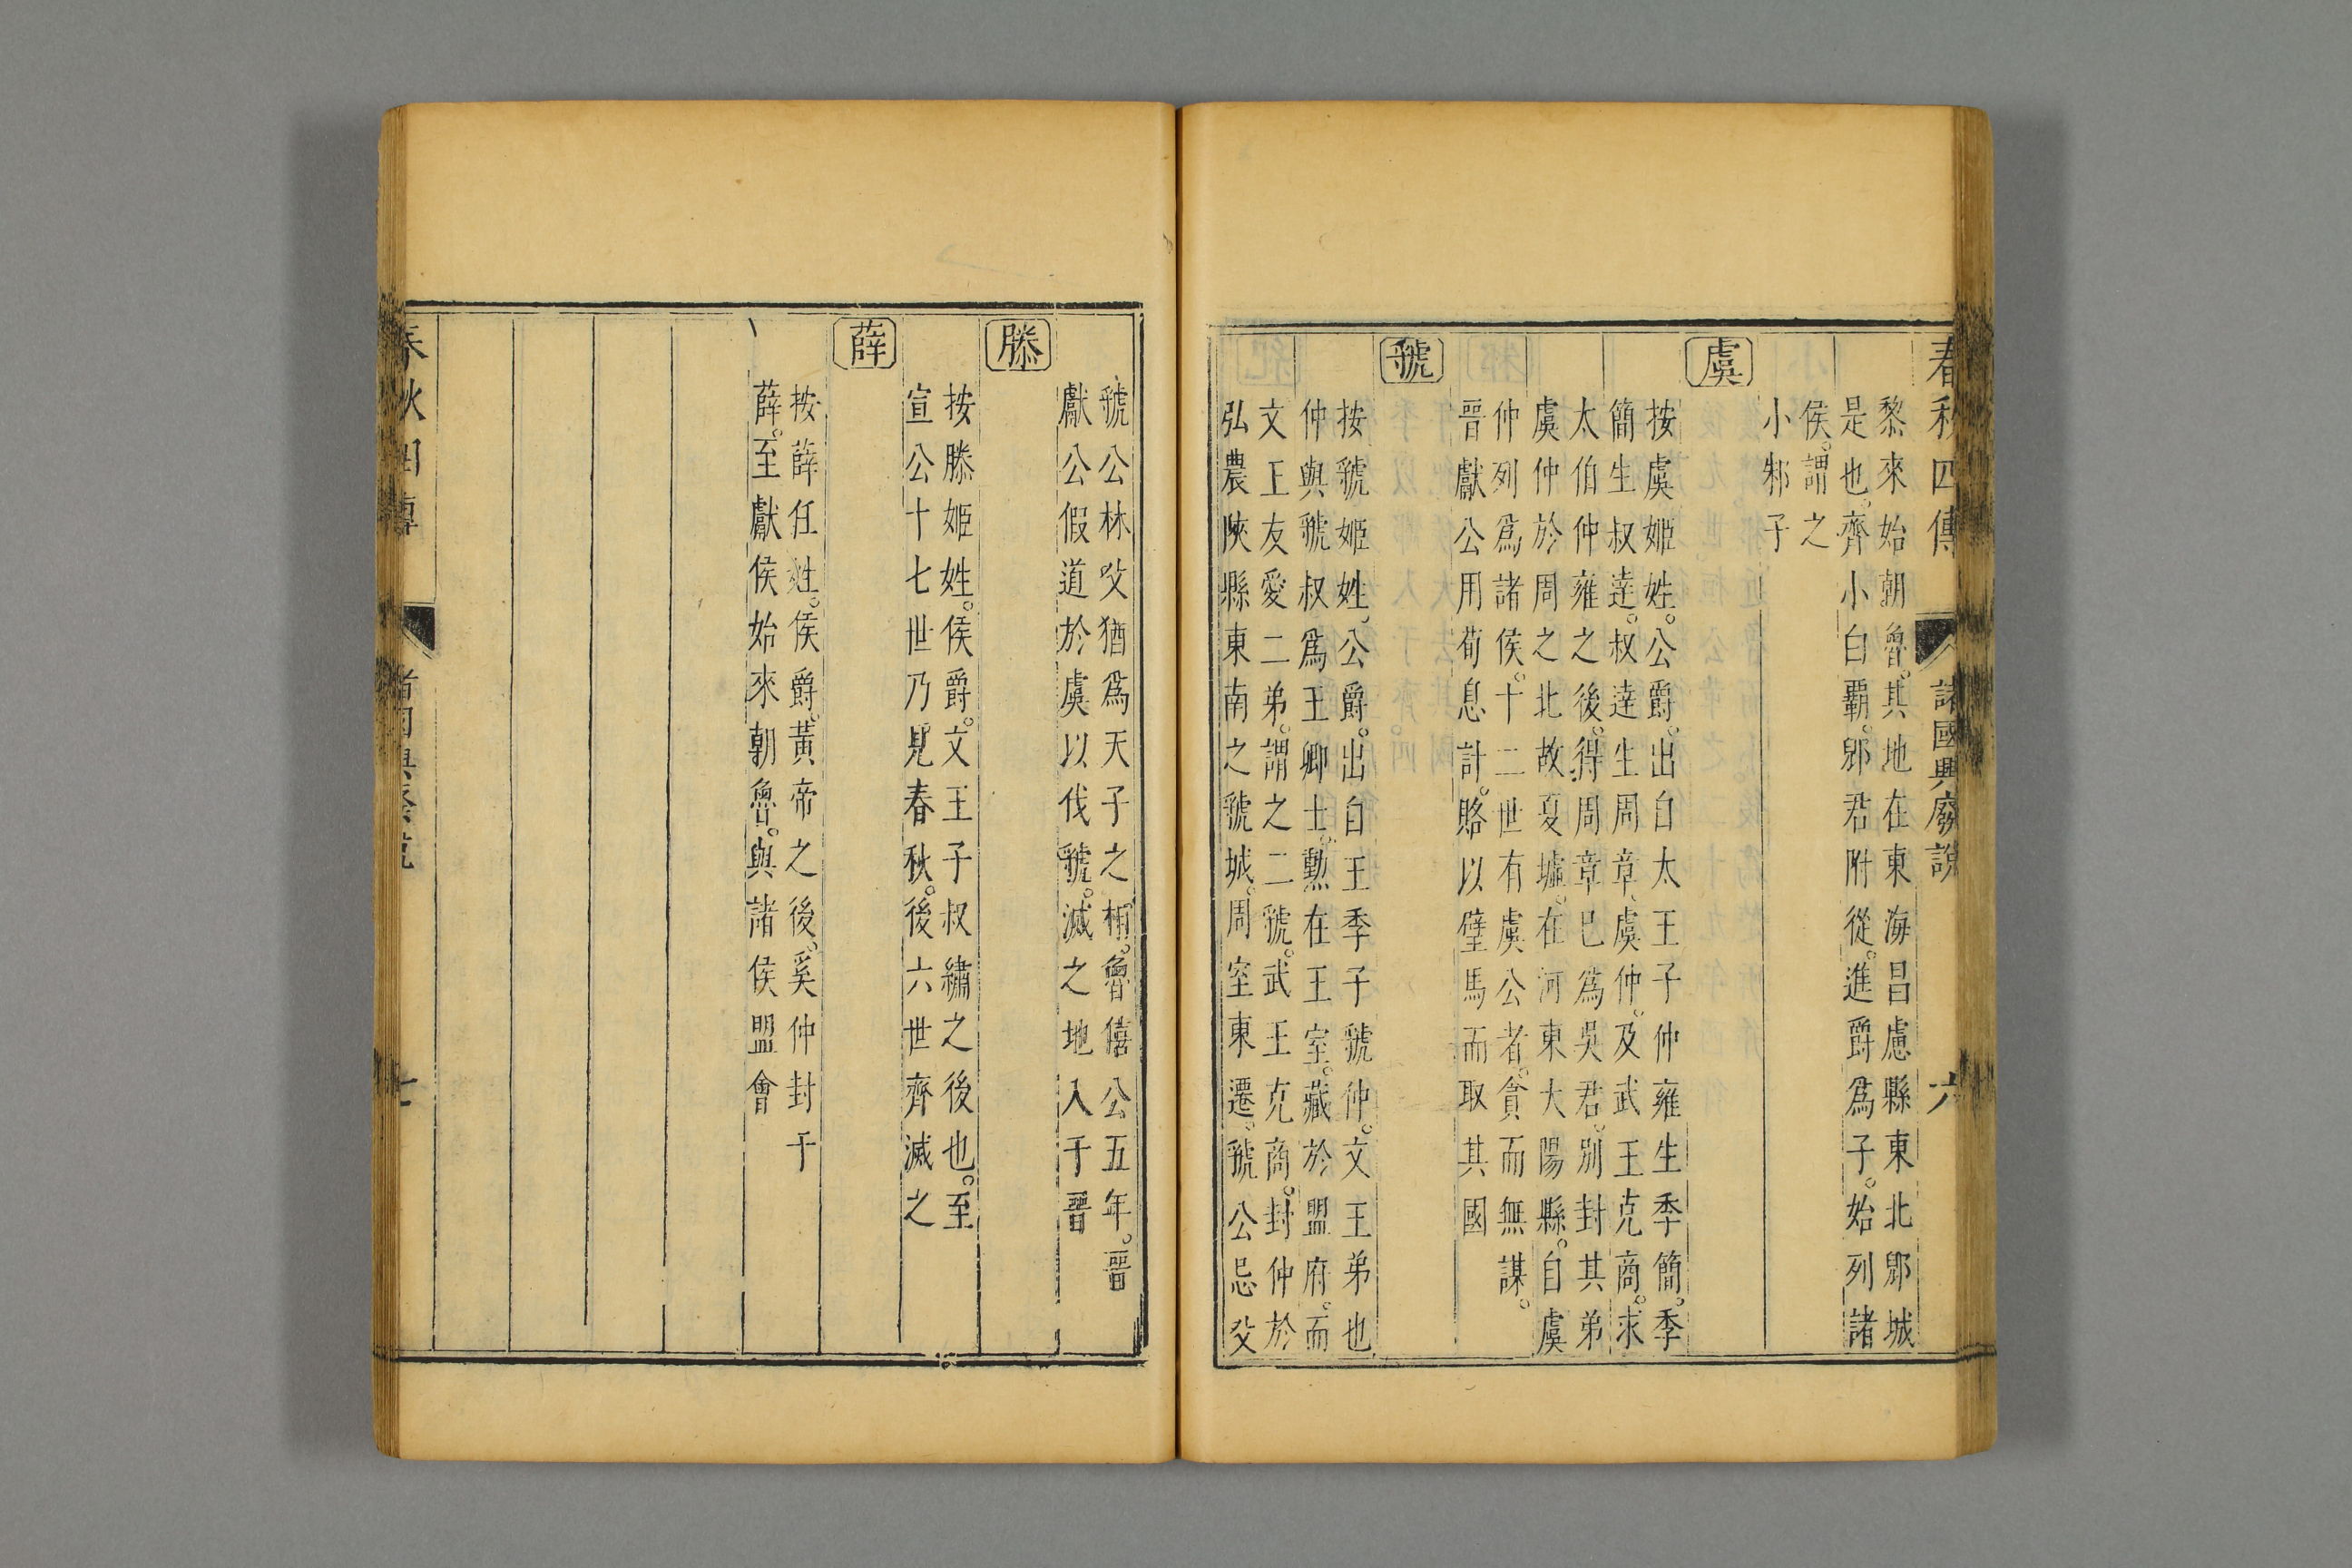 春秋四傳
諸國興廢說
六
黎來始朝魯。其地在東海昌慮縣東北郳城
是也。齊小白覇。郳君附從。進爵爲子。始列諸
侯。謂之
小邾子
虞
按虞姬姓。公爵。出自太王子仲雍生季簡。季
簡生叔逹。叔逹生周章虞仲。及武王克商。求
太伯仲雍之後。得周章已爲吳君。別封其弟
虞仲於周之北故夏墟。在河東大陽縣。自虞
仲列爲諸侯。十二世有虞公者。貪而無謀。
晋獻公用荀息計。賂以璧馬而取其國
虢
按虢姬姓。公爵。出自王季子虢仲。文王弟也
仲與虢叔爲王卿士。勲在王室。藏於盟府。而
文王友愛二弟。謂之二虢。武王克商。封仲於
弘農陝縣東南之虢城。周室東遷。虢公忌父
虢公林父猶爲天子之相。魯僖公五年。晋
獻公假道於虞以伐虢。滅之地入于晋
滕
按滕姬姓。侯爵。文王子叔繡之後也。至
宣公十七世乃見春秋。後六世齊滅之
薛
按薛任姓。侯爵。黃帝之後。奚仲封于
薛。至獻侯始來朝魯。與諸侯盟會